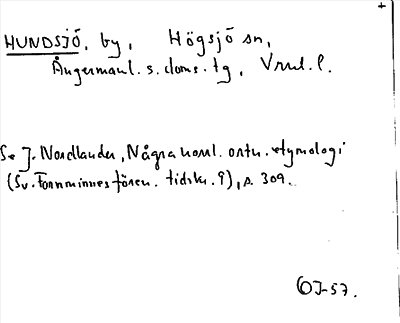 HUNDSJÖ, by, Högsjö sn,
Ångermanl. s. doms. tg, Vnrl. l.
Se J. Nordlander, Några norrl. ortn. etymologi
(Sv. Fornminnesfören. tidskr. 9), s. 309.
OJ-57.